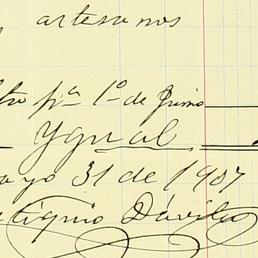 artesanos
pia 1º de Junio
Ygual
ayo 31 de 1907
tiquio Dávila